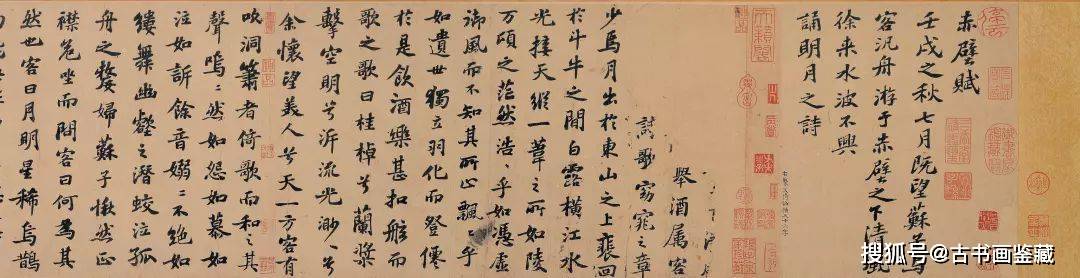 赤壁賦
壬戌之秋七月既望蘇子与
客汎舟游于赤壁之下清風
徐来水波不興
誦明月之詩
舉酒属客
歌窈窕之章
少焉月出於東山之上裵回
於斗牛之間白露橫江水
光接天縱一葦之所如陵
万頃之茫然浩〻乎如憑虛
御風而不知其所止飄〻乎
如遺世獨立羽化而登僊
於是飲酒樂甚扣舷而
歌之歌曰桂棹兮蘭槳
擊空明兮泝流光渺〻兮
余懷望美人兮天一方客有
吹洞簫者倚歌而和之其
聲嗚〻然如怨如慕如
泣如訴餘音嫋〻不絕如
縷舞幽壑之潛蛟泣孤
舟之嫠婦蘇子愀然正
襟危坐而問客曰何為其
然也客曰月明星稀烏鵲
搜狐号@古书画鉴藏